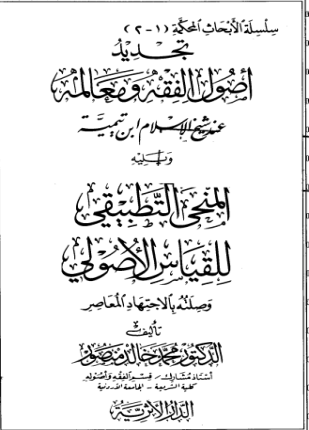 سلسلة الأبحاث المحكمة (١-٢)
تجديد
أصول الفقه ومعالمه
عند شيخ الإسلام ابن تيمية
ويليه
المنحى التطبيقي
للقياس الأصولي
وصلته بالاجتهاد المعاصر
تأليف
الدكتور محمد خالد منصور
أستاذ مشارك - قسم الفقه وأصوله
كلية الشريعة - الجامعة الأردنية
الدار الأثرية